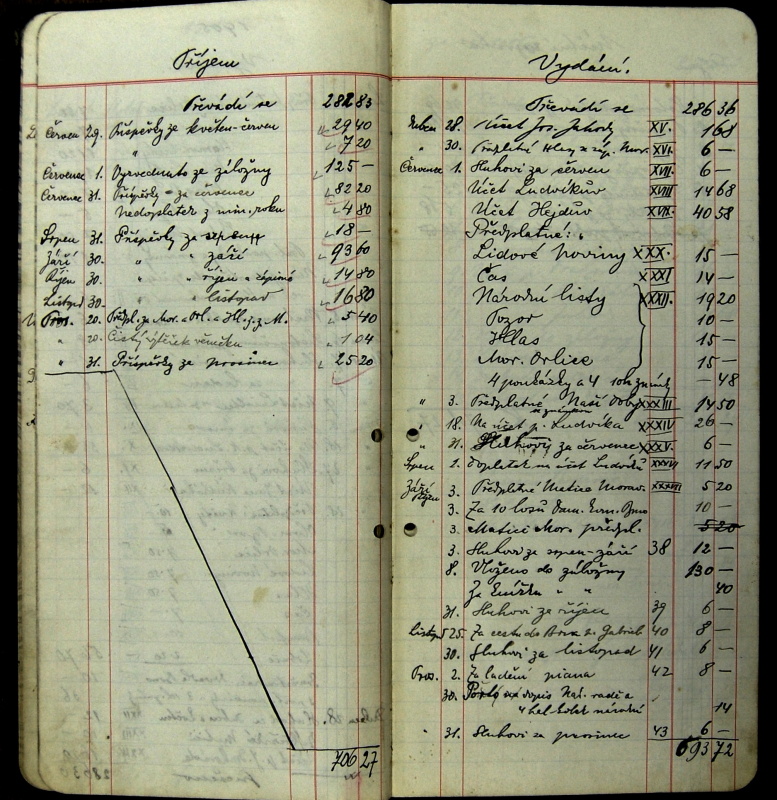 Příjem
Převádí se 282 83
Červen 29. Příspěvky za květen-červen 29 40
" 7 20
Červenec 1. Vyzvednuto ze záložny 125 —
Červenec 31. Příspěvky za červenec 82 20
Nedoplatek z min. roku 4 80
Srpen 31. Příspěvky za srpen 18 —
Září 30. " " září 93 60
Říjen 30. " " říjen a zápisné 14 80
Listopad 30. " " listopad 16 80
Pros. 20. Předpl. za Mor. a Orl. a Hl. z M. 5 40
" 20. Čistý výtěžek věnečku 1 04
" 31. Příspěvky za prosinec 25 20
706 27
Vydání.
Převádí se 286 36
Duben 28. Účet Jos. XV. 1 68
" 30. Předplatné Mor. XVI. 6 —
Červenec 1. Sluhovi za červen XVII. 6 —
Účet Ludvíkův XVIII 14 68
Účet Hejdův 40 58
Předplatné:
Lidové noviny XXX. 15 —
Čas XXXI 14 —
Národní listy XXXII. 19 20
Pozor 10 —
Hlas 15 —
Mor. Orlice 15 —
4 poukázky a 4 známky — 48
" 3. Předplatné Naší Doby XXXIII 14 50
se známkou
" 18. Na účet p. Ludvíka XXXIV 26 —
" 31. Sluhovi za červenec XXXV. 6 —
Srpen 2. Doplatek na účet Ludvíkův XXXVI 11 50
Září
Říjen 3. Předplatné Matice Morav. XXXVII 5 20
3. Za 10 losů Dam. 10 —
3. Matici Mor. předpl. 5 20
3. Sluhovi za srpen-září 38 12 —
8. Vloženo do záložny 130 —
Za knížku " " 40
31. Sluhovi za říjen 39 6 —
Listopad 25. Za cestu do Brna 40 8 —
30. Sluhovi za listopad 41 6 —
Pros. 2. Za ladění piana 42 8 —
30. Porto na dopis radě a
4 hal. kolek národní 14
" 31. Sluhovi za prosinec 43 6 —
693 72